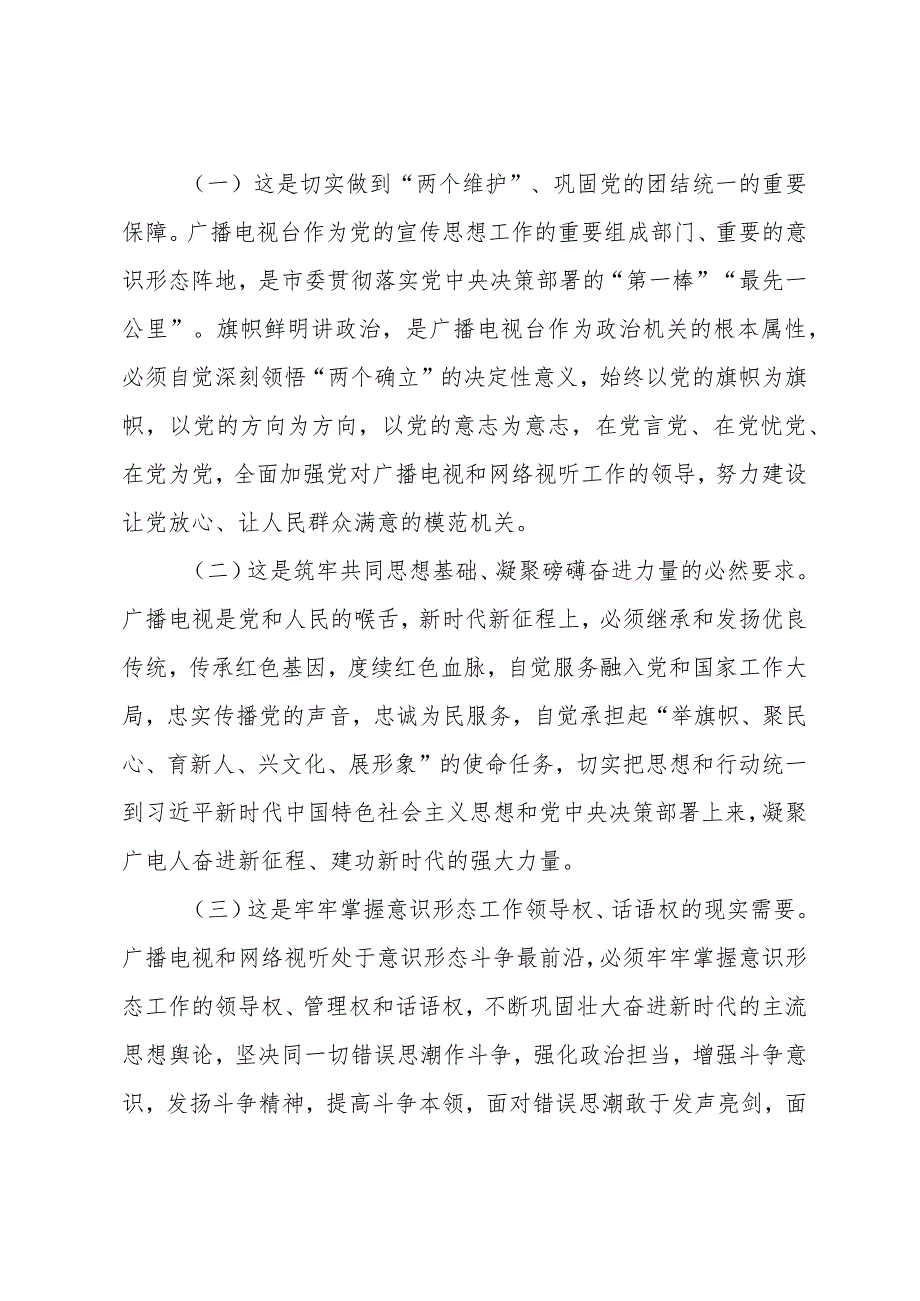 （一）这是切实做到“两个维护”、巩固党的团结统一的重要
保障。广播电视台作为党的宣传思想工作的重要组成部门、重要的意
识形态阵地，是市委贯彻落实党中央决策部署的“第一棒”“最先一
公里”。旗帜鲜明讲政治，是广播电视台作为政治机关的根本属性，
必须自觉深刻领悟“两个确立”的决定性意义，始终以党的旗帜为旗
帜，以党的方向为方向，以党的意志为意志，在党言党、在党忧党、
在党为党，全面加强党对广播电视和网络视听工作的领导，努力建设
让党放心、让人民群众满意的模范机关。
（二）这是筑牢共同思想基础、凝聚磅礴奋进力量的必然要求。
广播电视是党和人民的喉舌，新时代新征程上，必须继承和发扬优良
传统，传承红色基因，度续红色血脉，自觉服务融入党和国家工作大
局，忠实传播党的声音，忠诚为民服务，自觉承担起“举旗帜、聚民
心、育新人、兴文化、展形象”的使命任务，切实把思想和行动统一
到习近平新时代中国特色社会主义思想和党中央决策部署上来，凝聚
广电人奋进新征程、建功新时代的强大力量。
（三）这是牢牢掌握意识形态工作领导权、话语权的现实需要。
广播电视和网络视听处于意识形态斗争最前沿，必须牢牢掌握意识形
态工作的领导权、管理权和话语权，不断巩固壮大奋进新时代的主流
思想舆论，坚决同一切错误思潮作斗争，强化政治担当，增强斗争意
识，发扬斗争精神，提高斗争本领，面对错误思潮敢于发声亮剑，面